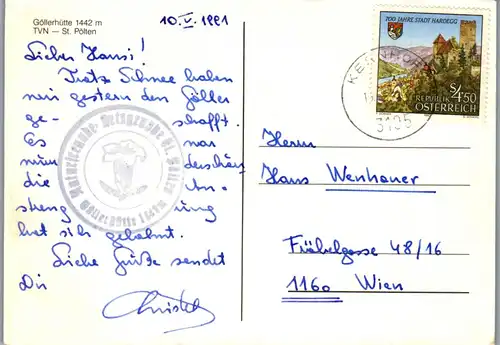 Göllerhütte 1442 m
TVN — St. Pölten
10.V.1991
Lieber Hansi!
Trotz Schnee haben
wir gestern den Göller
ge- schafft.
Es war
wunderschön,
die An-
streng ung
hat sich gelohnt.
Liebe Grüße sendet
Dir
Christl
700 JAHRE STADT HARDEGG
REPUBLIK
ÖSTERREICH
S 4.50
3195
Herrn
Hans Wenhauer
Fröbelgasse 48/16
1160 Wien